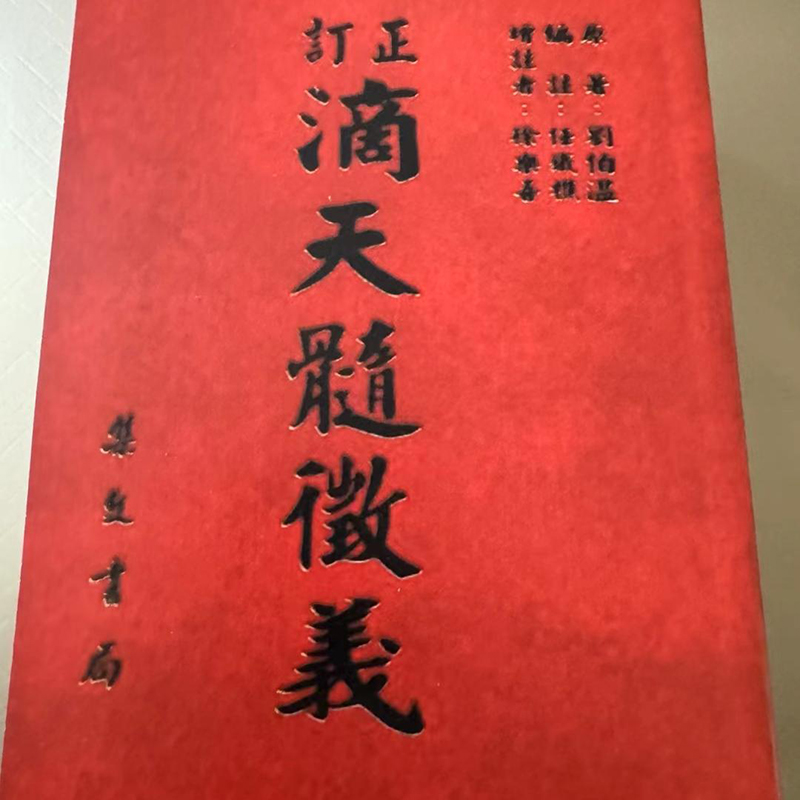 原著：劉伯溫
編註：任鐵樵
增註者：徐樂吾
訂正
滴天髓徵義
集文書局